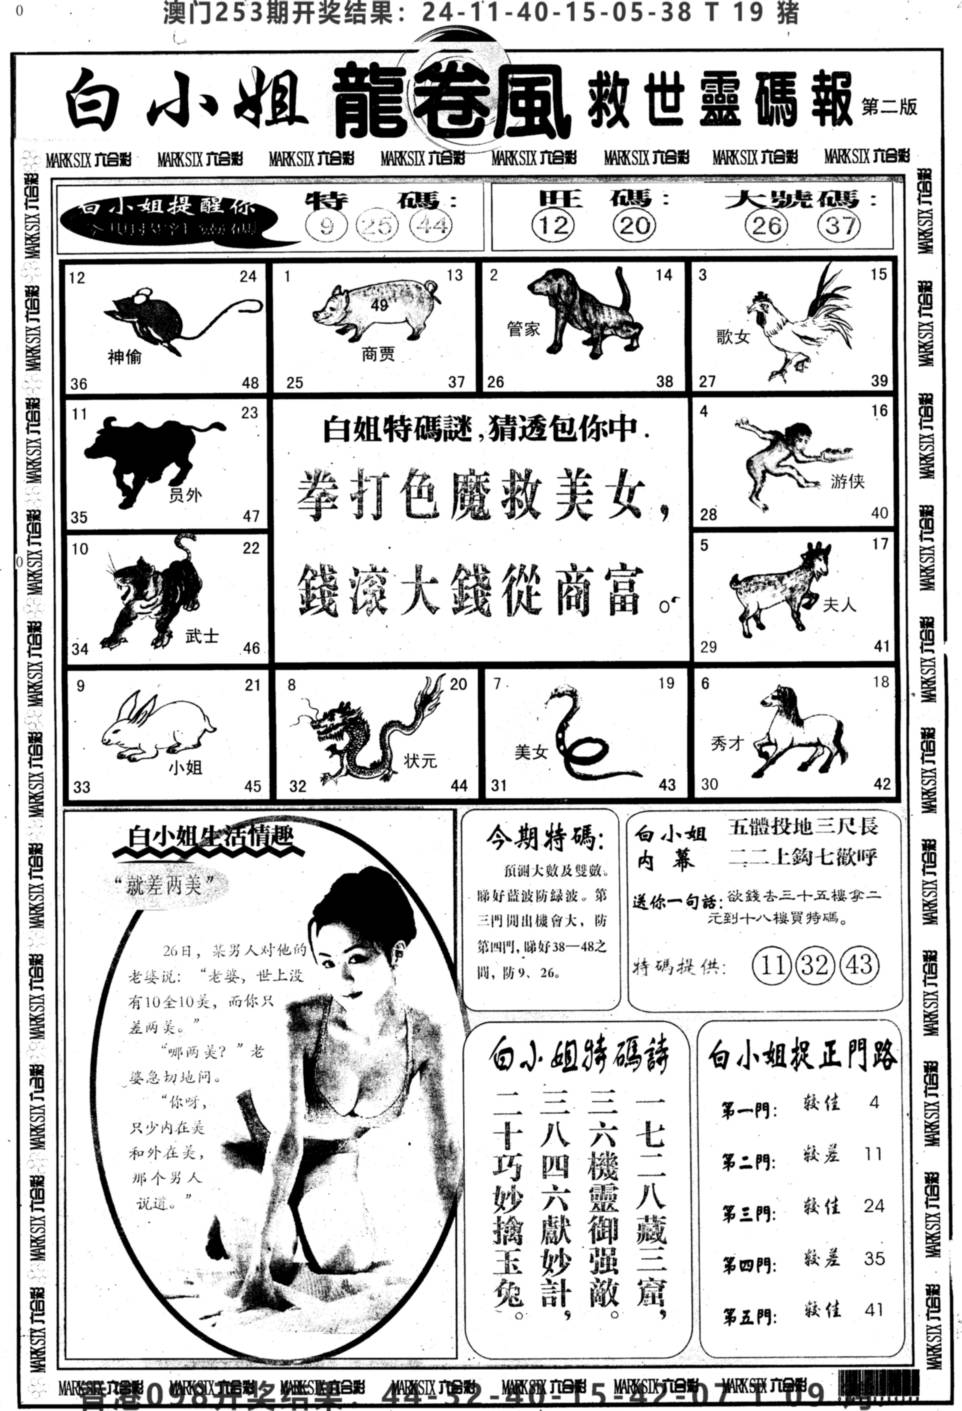 澳门253期开奖结果：24-11-40-15-05-38 T 19 猪
白小姐 龍卷風 救世靈碼報 第二版
MARK SIX 六合彩 MARK SIX 六合彩 MARK SIX 六合彩 MARK SIX 六合彩 MARK SIX 六合彩 MARK SIX 六合彩 MARK SIX 六合彩 MARK SIX 六合彩
白小姐提醒你
特 碼：
9 25 44
旺 碼：
12 20
大號碼：
26 37
12 24
神偷
36 48
1 13
49
商贾
25 37
2 14
管家
26 38
3 15
歌女
27 39
11 23
员外
35 47
4 16
游侠
28 40
10 22
武士
34 46
5 17
夫人
29 41
白姐特碼謎,猜透包你中.
拳打色魔救美女,
錢滚大錢從商富。
9 21
小姐
33 45
8 20
状元
32 44
7 19
美女
31 43
6 18
秀才
30 42
白小姐生活情趣
“就差两美”
26日，某男人对他的
老婆说：“老婆，世上没
有10全10美，而你只
差两美。”
“哪两美？”老
婆急切地问。
“你呀，
只少内在美
和外在美，
那个男人
说道。”
今期特碼:
預測大數及雙數。
睇好藍波防緑波。第
三門開出機會大，防
第四門,睇好38—48之
間，防9、26。
白小姐內幕
五體投地三尺長
二二上鈎七歡呼
送你一句話：欲錢去三十五樓拿二
元到十八樓買特碼。
特碼提供： 11 32 43
白小姐特碼詩
一七二八藏三窟，
三六機靈御强敵。
三八四六獻妙計，
二十巧妙擒玉兔。
白小姐捉正門路
第一門： 较佳 4
第二門： 较差 11
第三門： 较佳 24
第四門： 较差 35
第五門： 较佳 41
MARK SIX 六合彩 MARK SIX 六合彩 MARK SIX 六合彩 MARK SIX 六合彩 MARK SIX 六合彩 MARK SIX 六合彩 MARK SIX 六合彩
香港098开奖结果：44-32-40-15-42-07 T 09